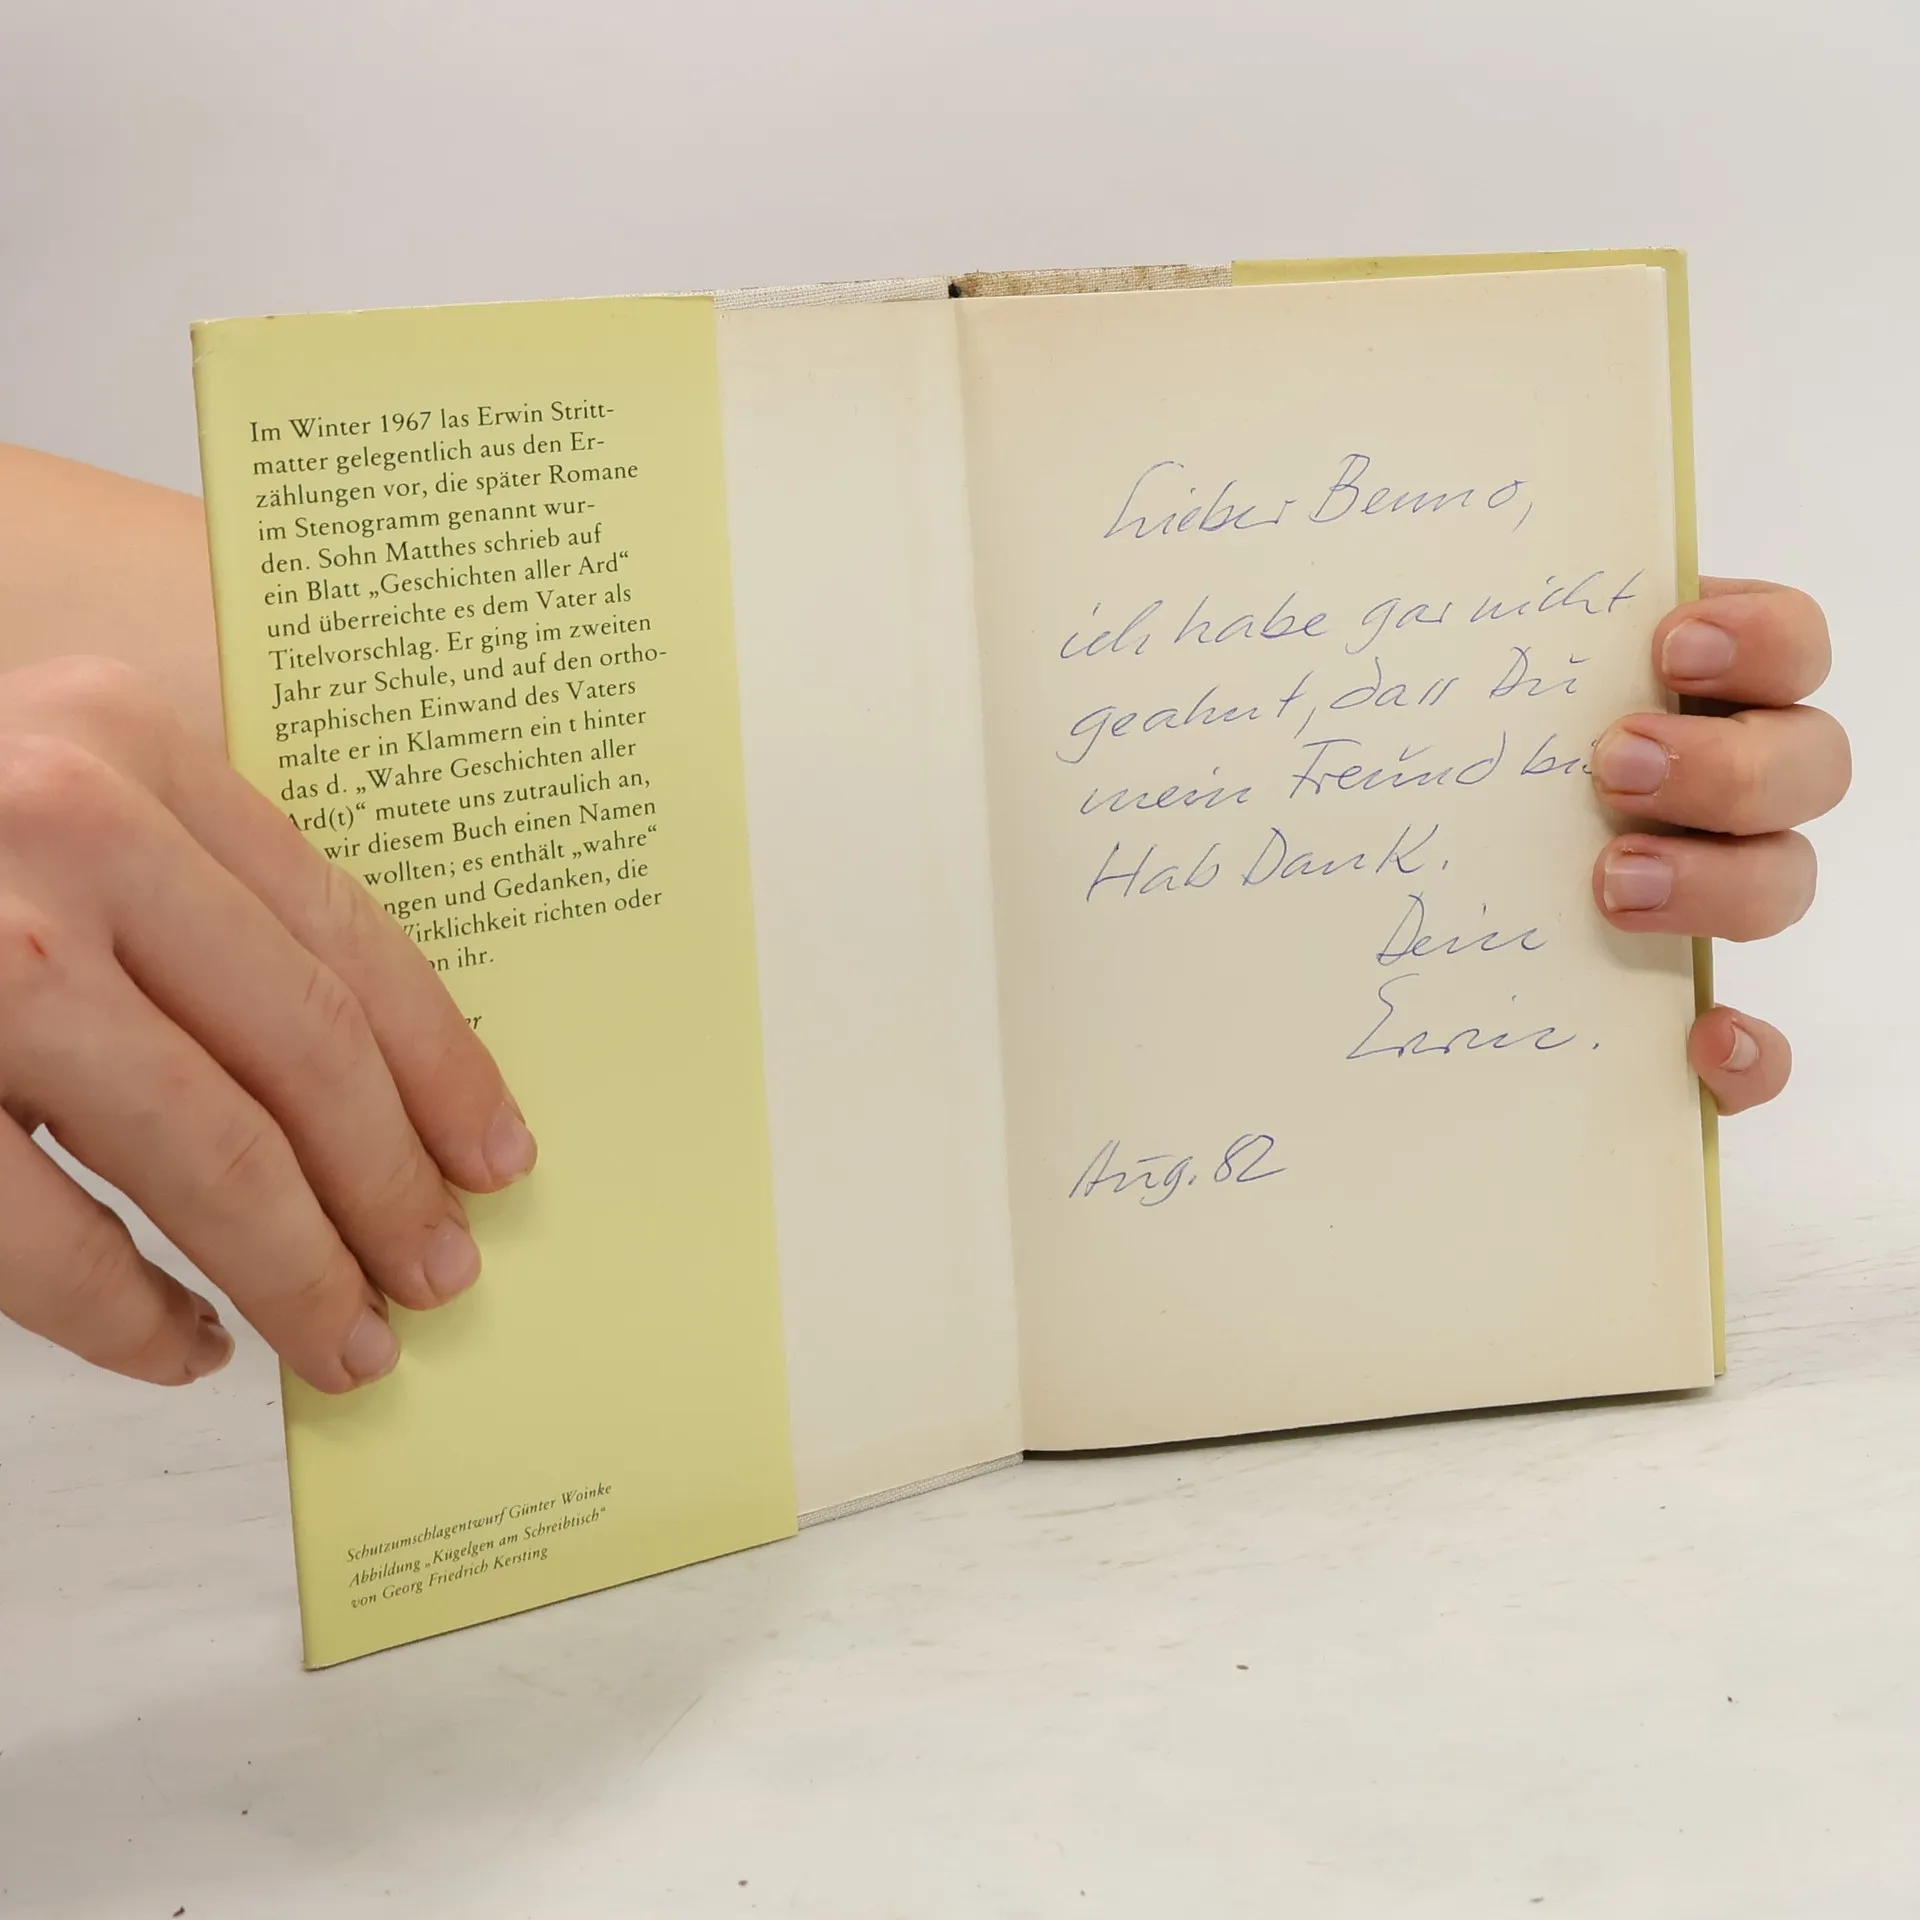 Im Winter 1967 las Erwin Stritt-
matter gelegentlich aus den Er-
zählungen vor, die später Romane
im Stenogramm genannt wur-
den. Sohn Matthes schrieb auf
ein Blatt „Geschichten aller Ard“
und überreichte es dem Vater als
Titelvorschlag. Er ging im zweiten
Jahr zur Schule, und auf den ortho-
graphischen Einwand des Vaters
malte er in Klammern ein t hinter
das d. „Wahre Geschichten aller
Ard(t)“ mutete uns zutraulich an,
wir diesem Buch einen Namen
wollten; es enthält „wahre“
ngen und Gedanken, die
Wirklichkeit richten oder
on ihr.
er
Schutzumschlagentwurf Günter Woinke
Abbildung „Kügelgen am Schreibtisch“
von Georg Friedrich Kersting
Lieber Benno,
ich habe gar nicht
geahnt, dass Du
mein Freund bi
Hab Dank.
Dein
Erwin.
Aug. 82